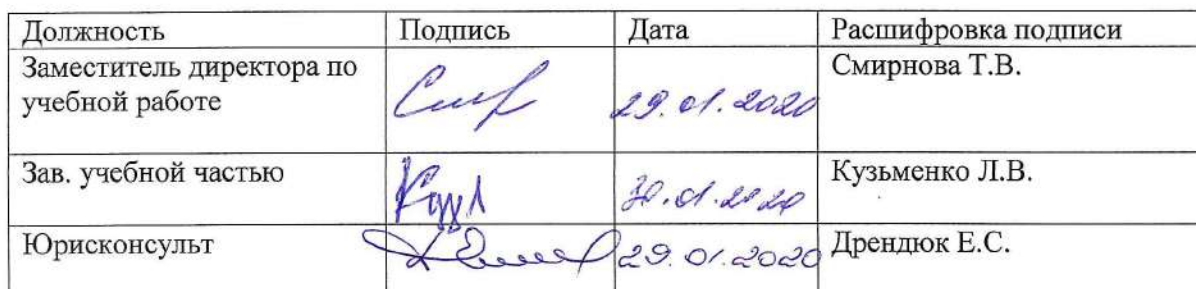 Должность Подпись Дата Расшифровка подписи
Заместитель директора по
учебной работе 29.01.2020 Смирнова Т.В.
Зав. учебной частью 30.01.2020 Кузьменко Л.В.
Юрисконсульт 29.01.2020 Дрендюк Е.С.